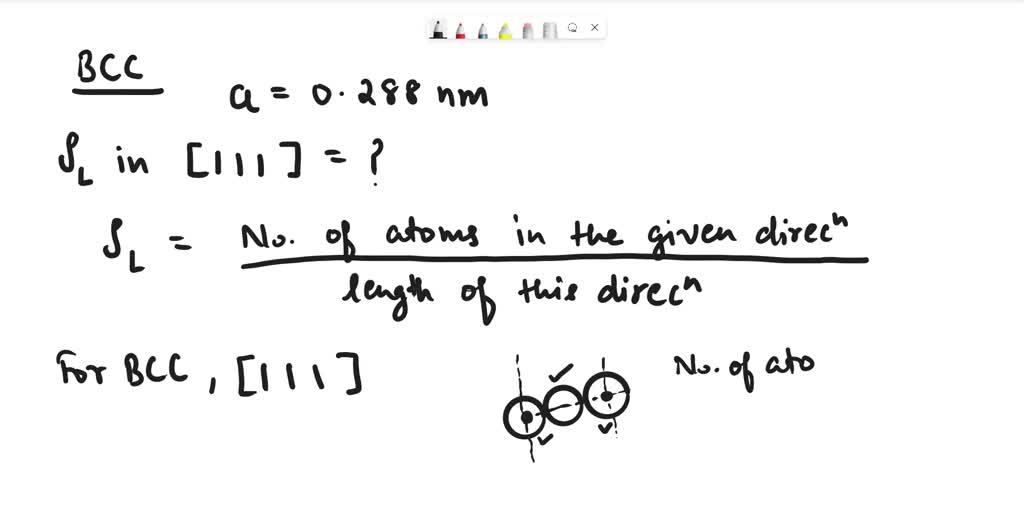 BCC
a = 0.288 nm
ρL in [111] = ?
ρL = No. of atoms in the given direcⁿ
length of this direcⁿ
For BCC, [111]
No. of ato